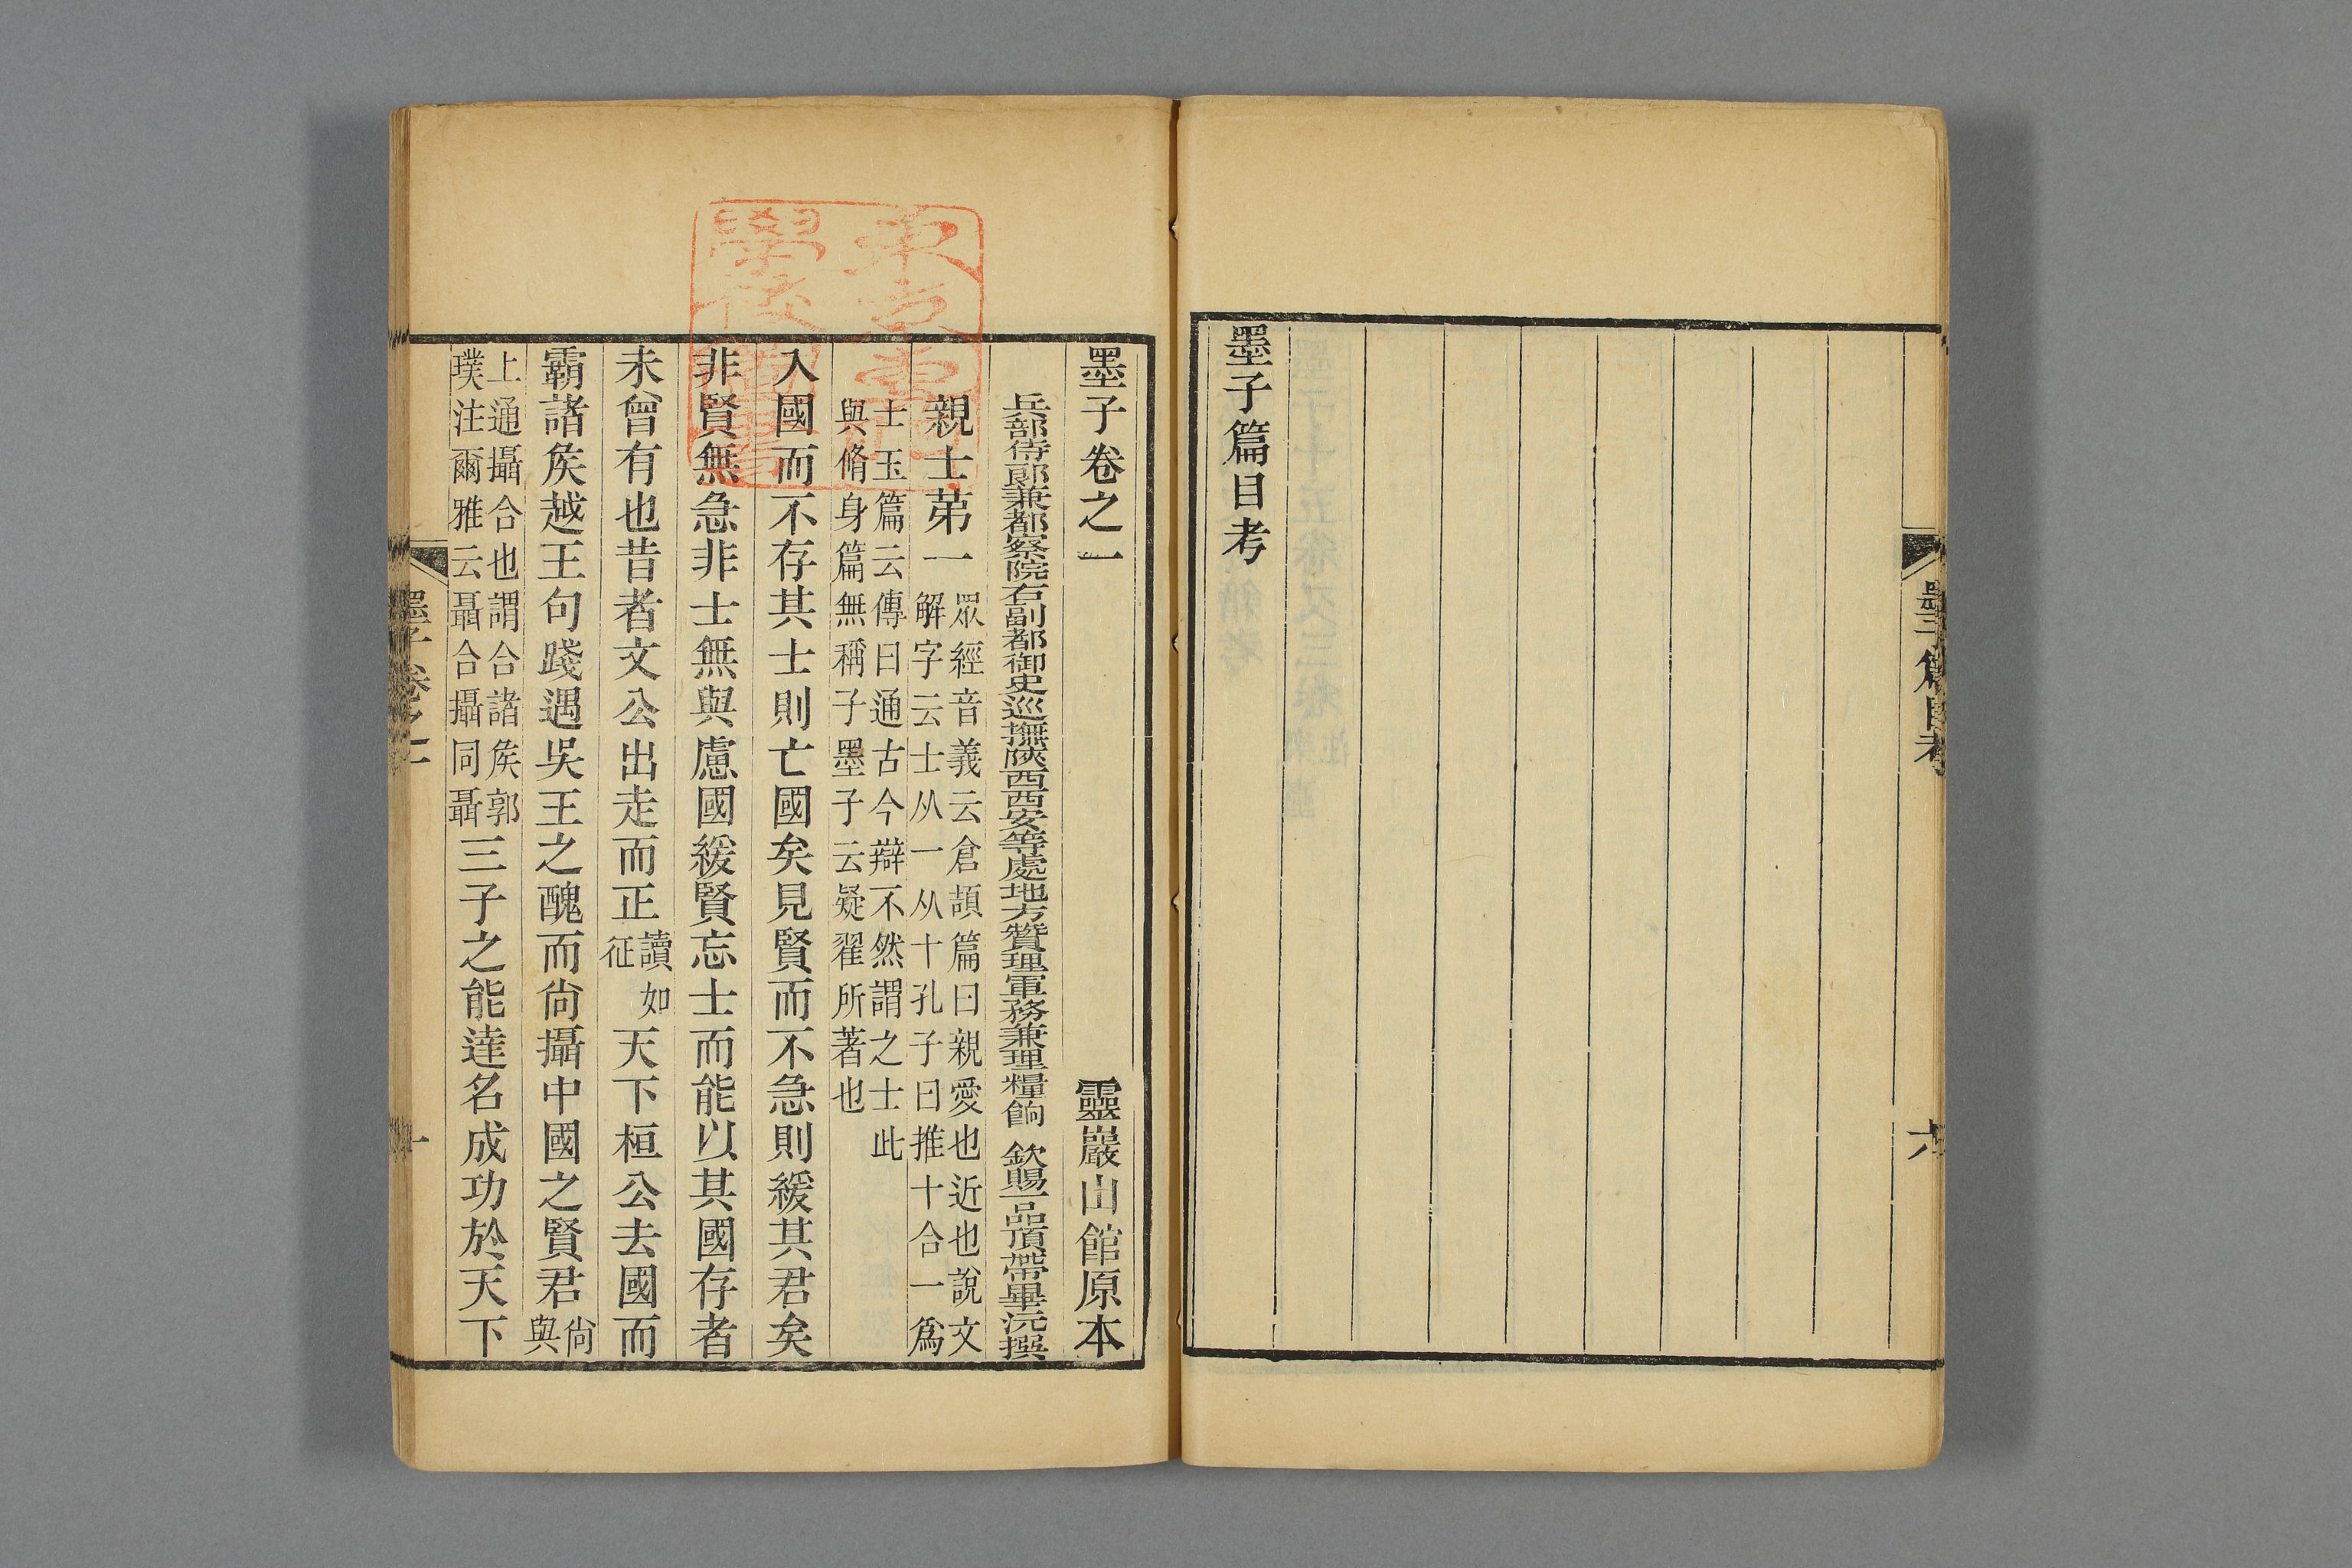 墨子篇目考
墨子篇目考
六
墨子卷之一　靈巖山館原本
兵部侍郎兼都察院右副都御史巡撫陝西西安等處地方贊理軍務兼理糧餉　欽賜一品頂帶畢沅撰
親士苐一
眾經音義云倉頡篇曰親愛也近也說文
解字云士从一从十孔子曰推十合一為
士玉篇云傳曰通古今辯不然謂之士此
與脩身篇無稱子墨子云疑翟所著也
入國而不存其士則亡國矣見賢而不急則緩其君矣
非賢無急非士無與慮國緩賢忘士而能以其國存者
未曾有也昔者文公出走而正讀如征天下桓公去國而
霸諸矦越王句踐遇吳王之醜而尙攝中國之賢君尙與
上通攝合也謂合諸矦郭
璞注爾雅云聶合攝同聶三子之能達名成功於天下
墨子卷之一
一